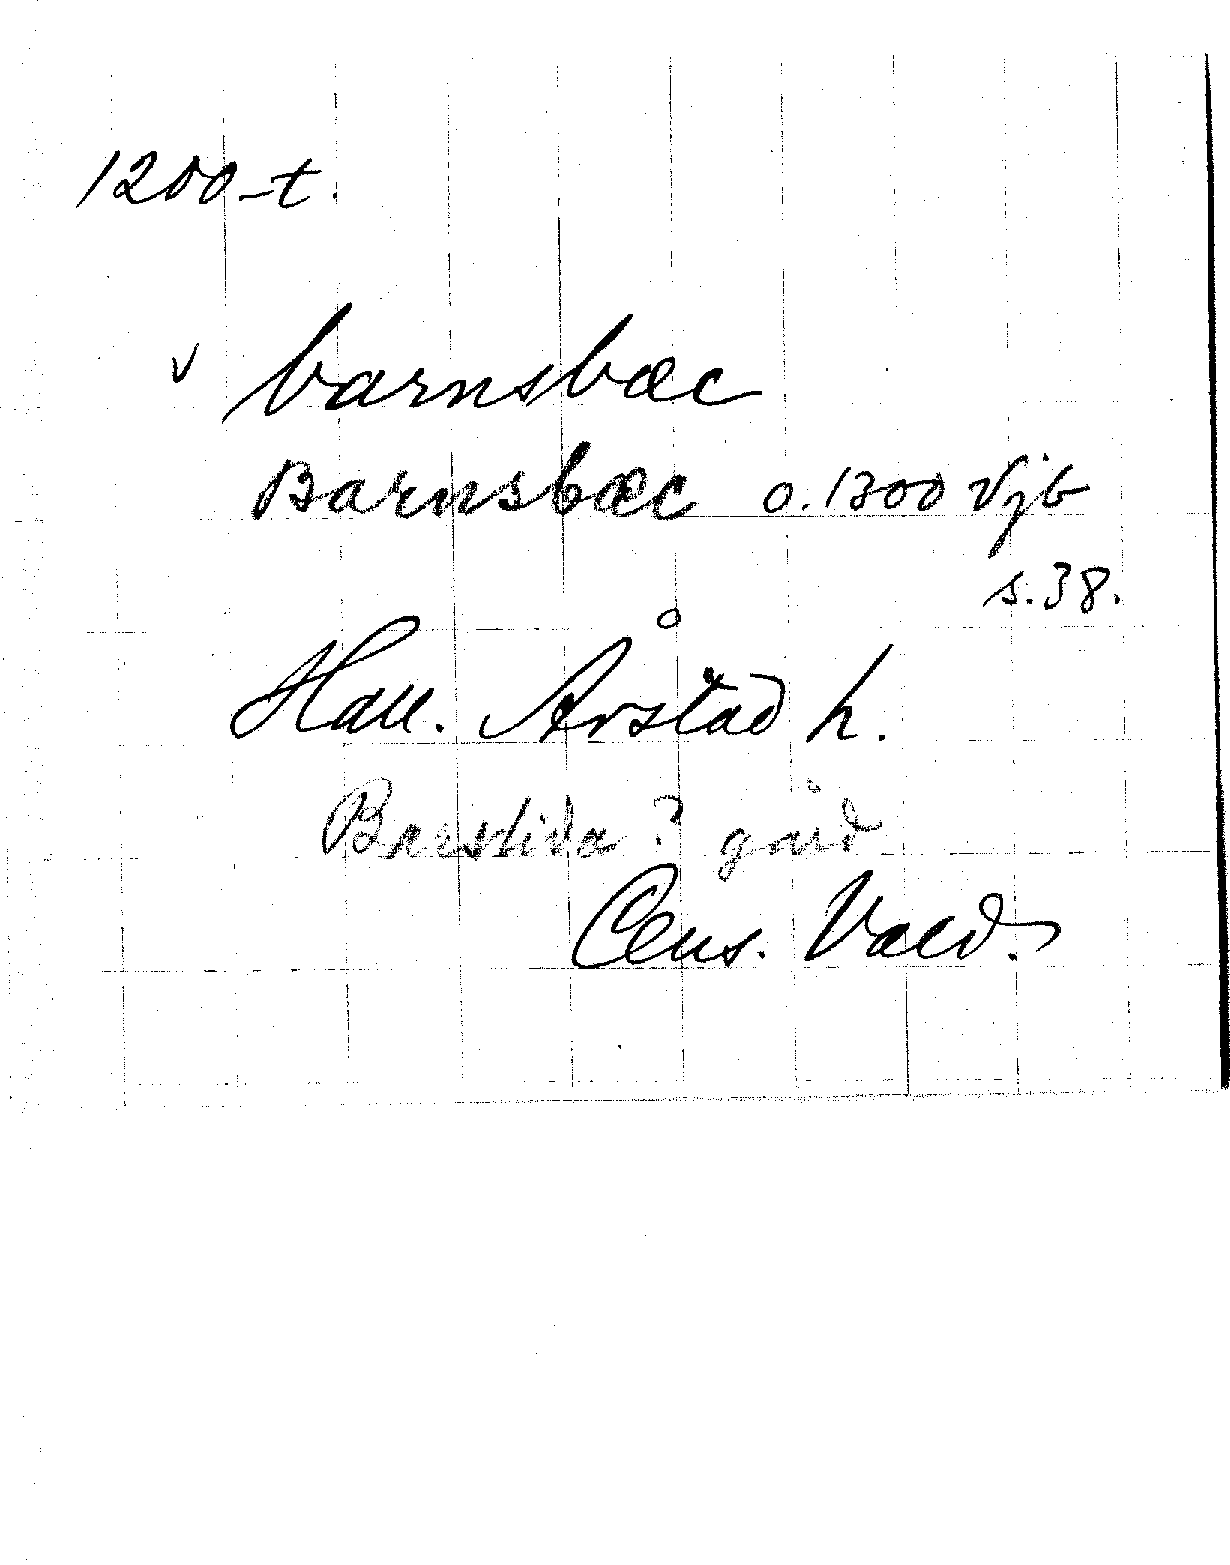 1200-t.
v barnsbæc
Barnsbæc o. 1300 Vjb
s. 38.
Hall. Årstad h.
Barstida? gård
Cens. Vald.